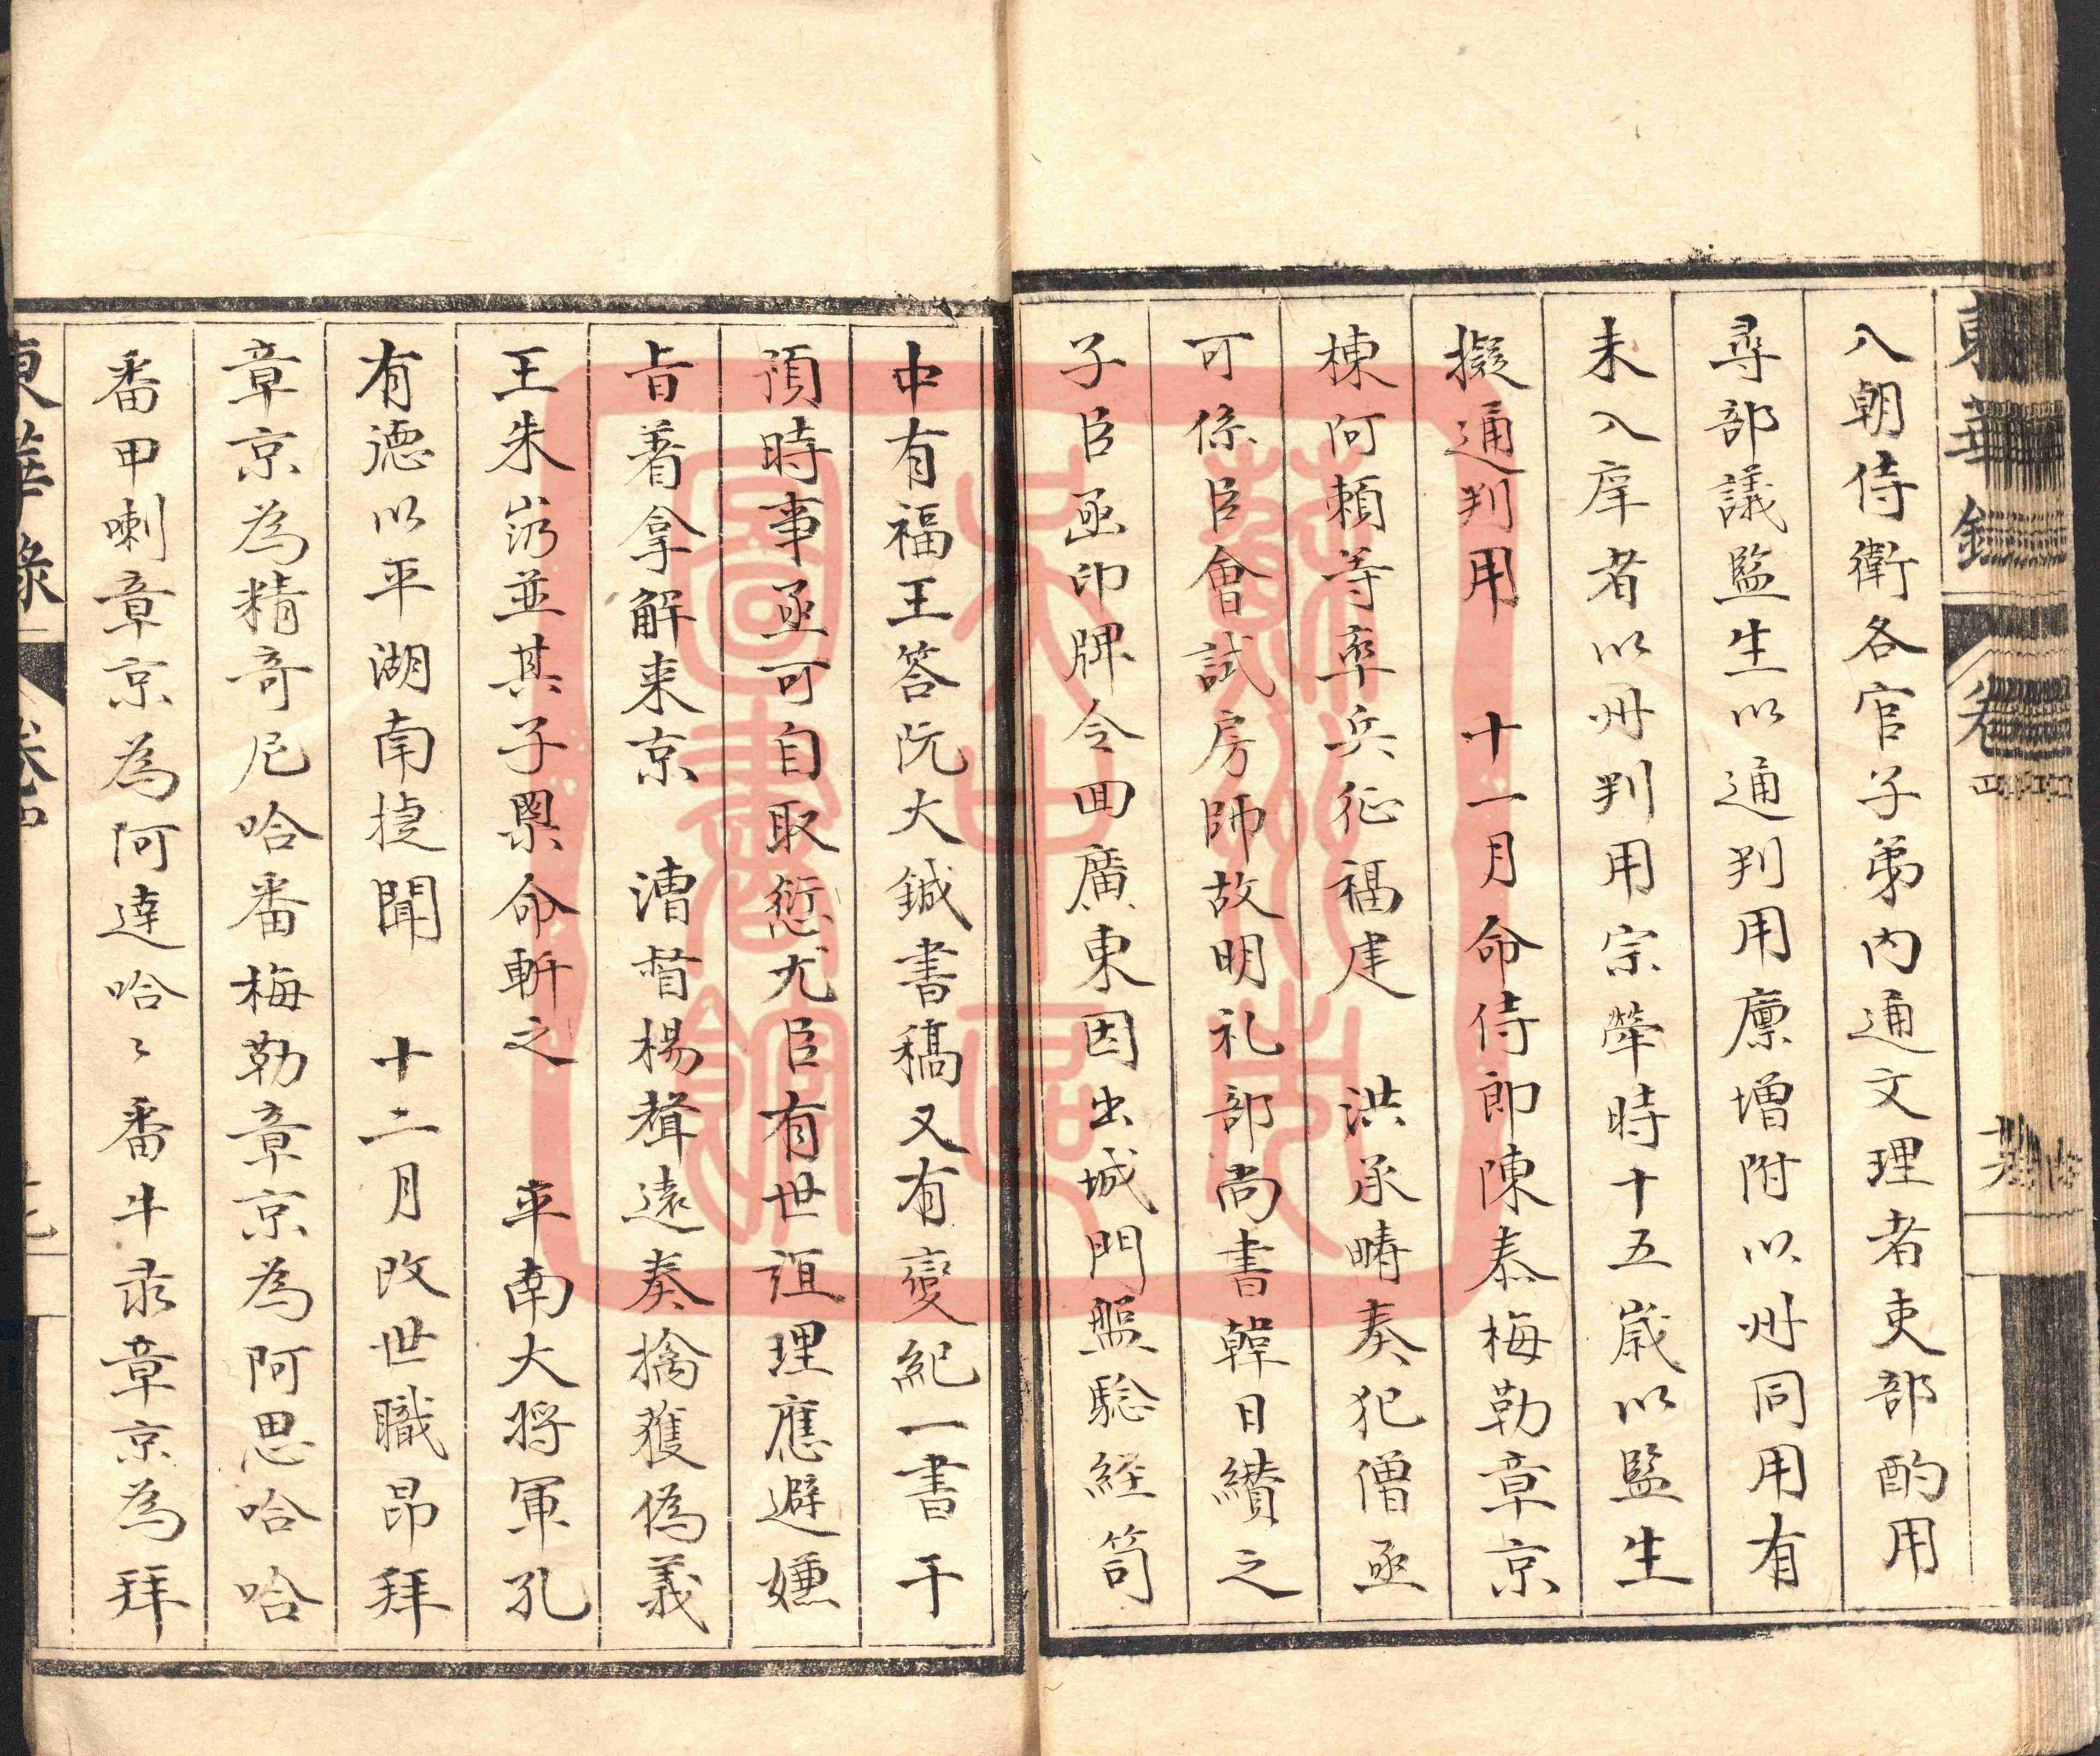 東華錄 卷四
八朝侍衛各官子弟內通文理者吏部酌用
尋部議監生以通判用廩增附以州同用有
未入庠者以州判用宗犖時十五歲以監生
擬通判用 十一月命侍郎陳泰梅勒章京
棟阿賴等率兵征福建 洪承疇奏犯僧函
可係臣會試房師故明礼部尚書韓日纘之
子臣函印牌令回廣東因出城門盤驗経笥
中有福王答阮大鋮書稿又有變紀一書干
預時事函可自取愆尤臣有世誼理應避嫌
旨著拿解来京 漕督楊聲遠奏擒獲偽義
王朱 並其子 命斬之 平南大将軍孔
有德以平湖南捷聞 十二月改世職昂拜
章京為精奇尼哈番梅勒章京為阿思哈哈
番甲喇章京為阿達哈〻番牛彔章京為拜
東華錄 卷四
蘇州市
公中區
圖書館